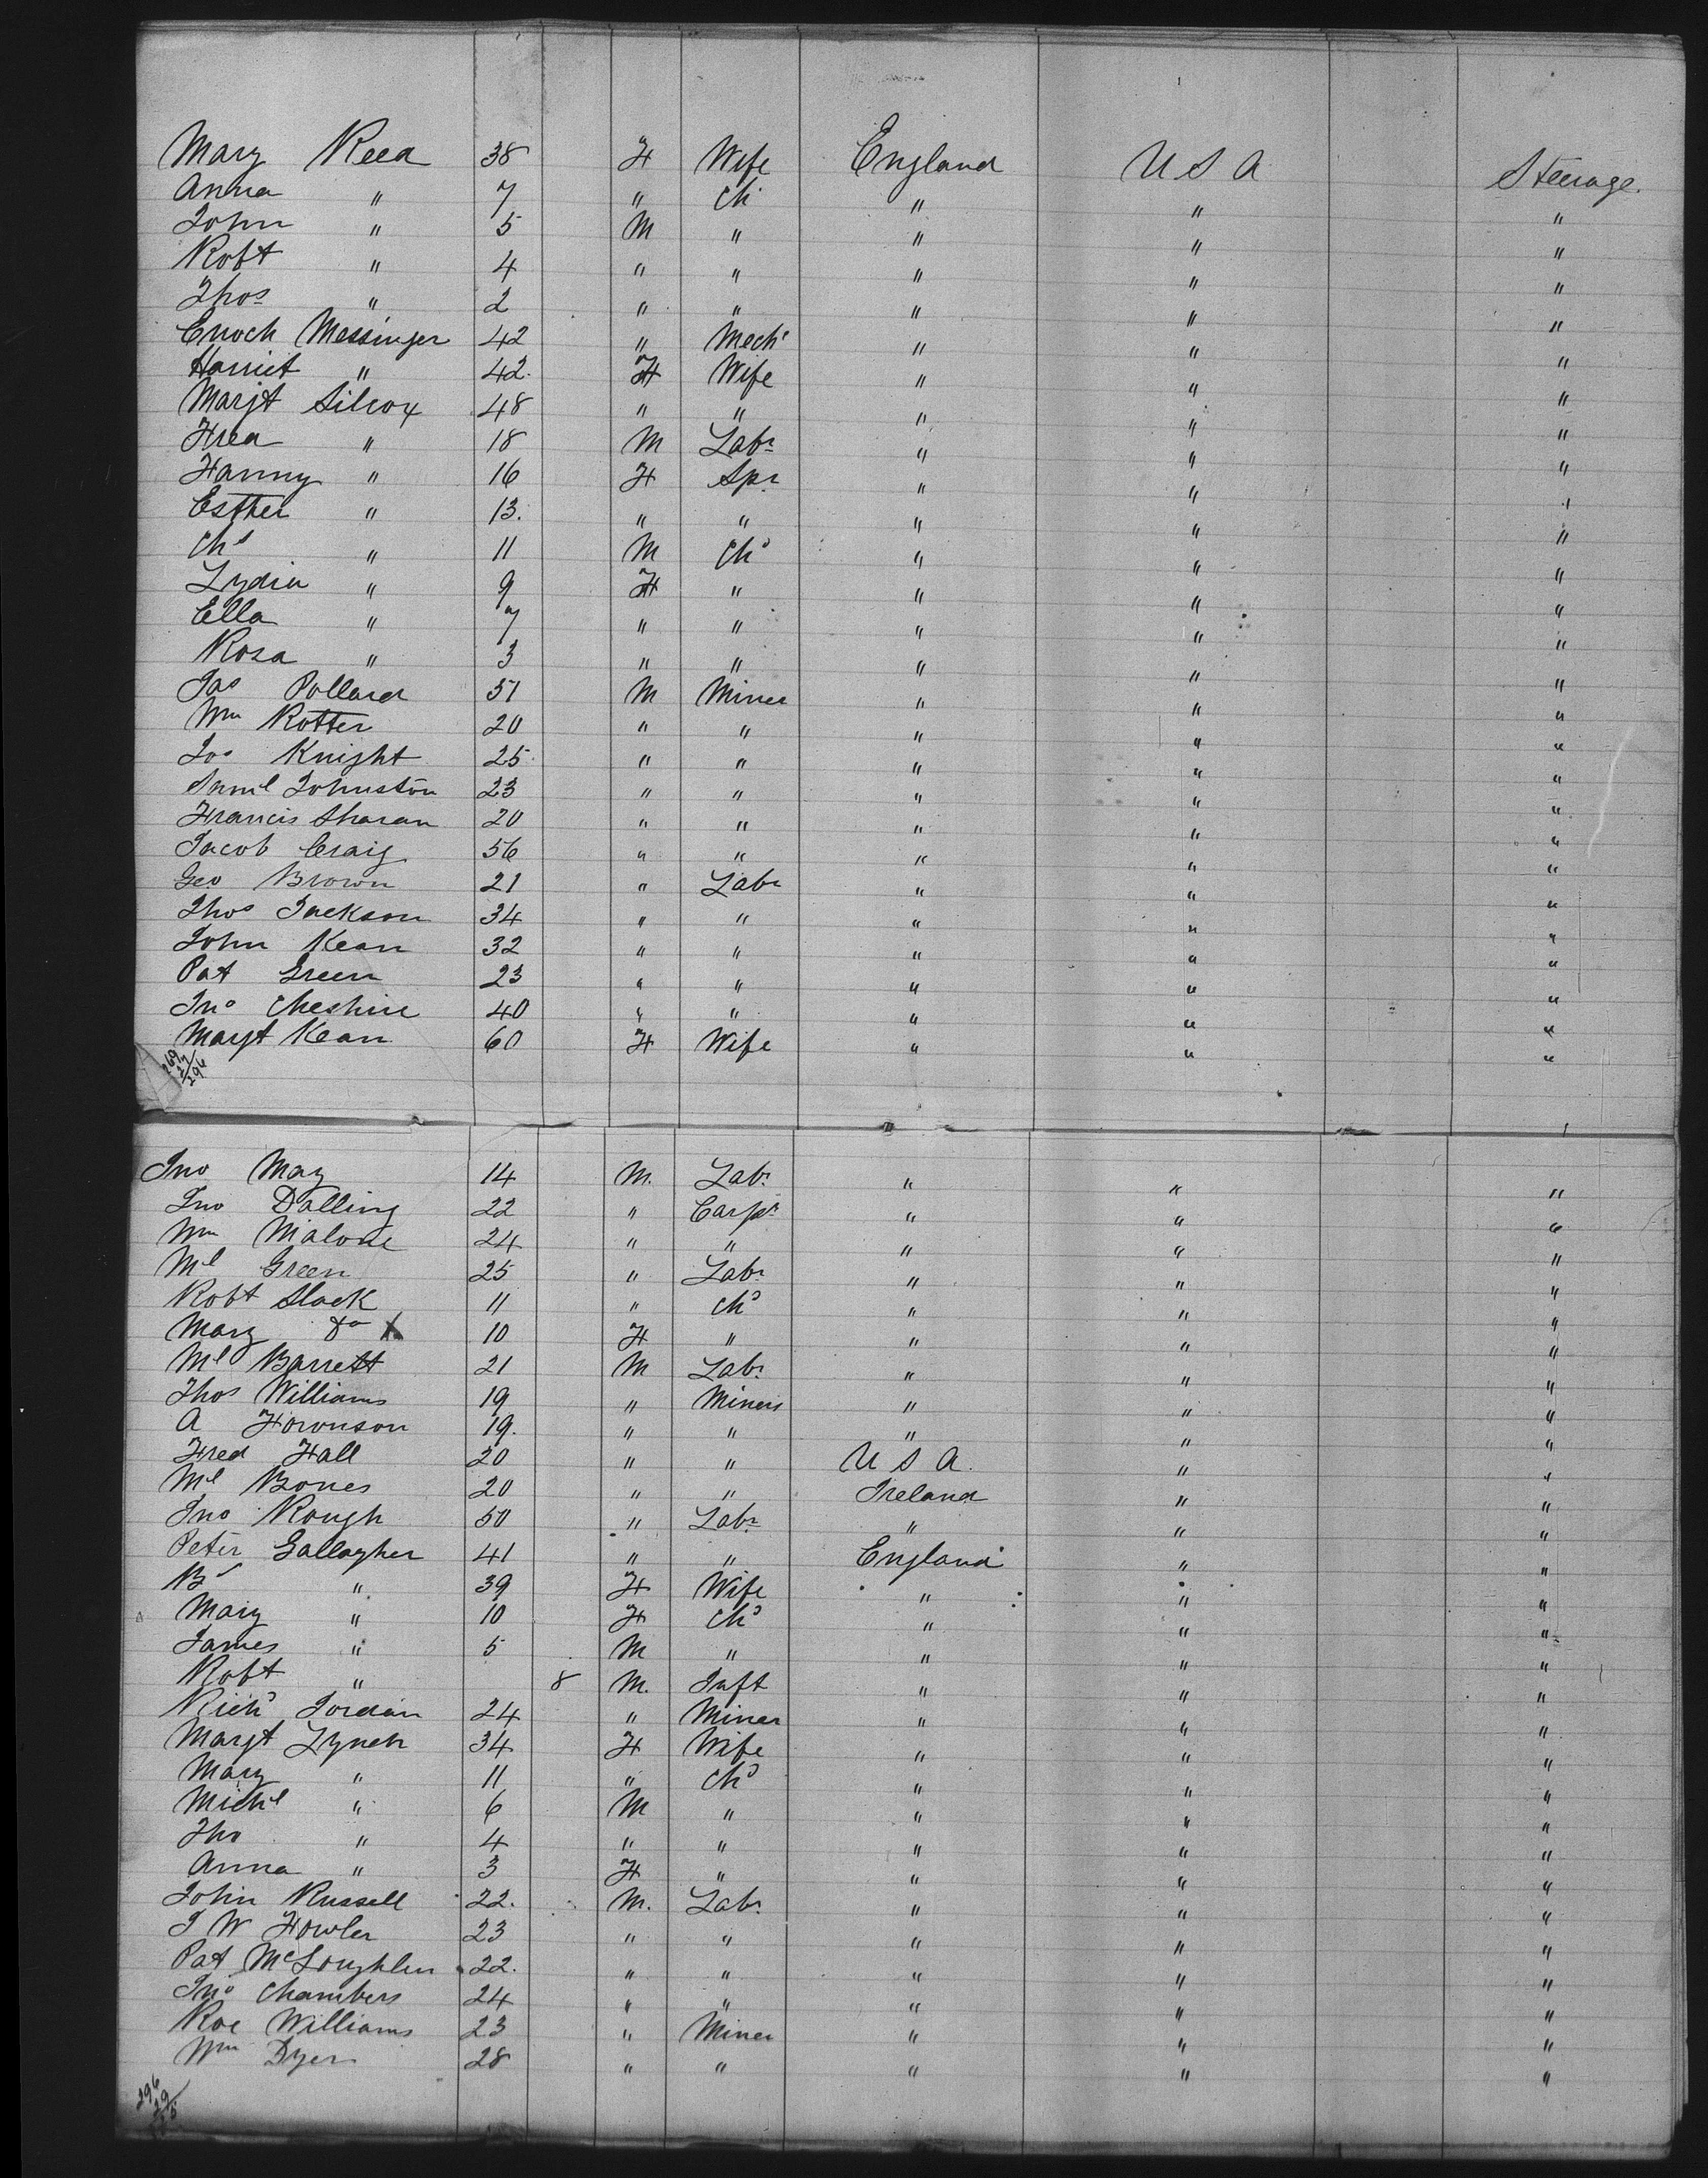 Mary Reed 38 F Wife England U S A Steerage.
Anna " 7 " Ch " " "
John " 5 M " " " "
Robt " 4 " " " " "
Thos " 2 " " " " "
Enoch Messinger 42 " Mechc " " "
Harriet " 42. F Wife " " "
Margt Silcox 48 " " " " "
Fred " 18 M Labr " " "
Fanny " 16 F Spr " " "
Esther " 13. " " " " "
Chs " 11 M Chd " " "
Lydia " 9 F " " " "
Ella " 7 " " " " "
Rosa " 3 " " " " "
Jas Pollard 51 M Miner " " "
Wm Rotter 20 " " " " "
Jos Knight 25 " " " " "
Saml Johnston 23 " " " " "
Francis Sharan 20 " " " " "
Jacob Craig 56 " " " " "
Geo Brown 21 " Labr " " "
Thos Jackson 34 " " " " "
John Kean 32 " " " " "
Pat Green 23 " " " " "
Jno Cheshire 40 " " " " "
Margt Kean 60 F Wife " " "
269
27
296
Jno May 14 M. Labr " " "
Jno Dalling 22 " Carpr " " "
Wm Malone 24 " " " " "
Ml Green 25 " Labr " " "
Robt Slack 11 " Chd " " "
Mary Do X 10 F " " " "
Ml Barrett 21 M Labr " " "
Thos Williams 19 " Miners " " "
A Foronson 19. " " " " "
Fred Hall 20 " " U S A. " "
Ml Bones 20 " " Ireland " "
Jno Rough 50 " Labr " " "
Peter Gallagher 41 " " England " "
" 39 F Wife " " "
Mary " 10 F Chd " " "
James " 5 M " " " "
Robt " 8 M. Inft " " "
Richd Jordan 24 " Miner " " "
Margt Lynch 34 F Wife " " "
Mary " 11 " Chd " " "
Michl " 6 M " " " "
Tho " 4 " " " " "
Anna " 3 F " " " "
John Russell 22. M. Labr " " "
J W Fowler 23 " " " " "
Pat McLoughlen 22. " " " " "
Jno Chambers 24 " " " " "
Roe Williams 23 " Miner " " "
Wm Dyer 28 " " " " "
296
29